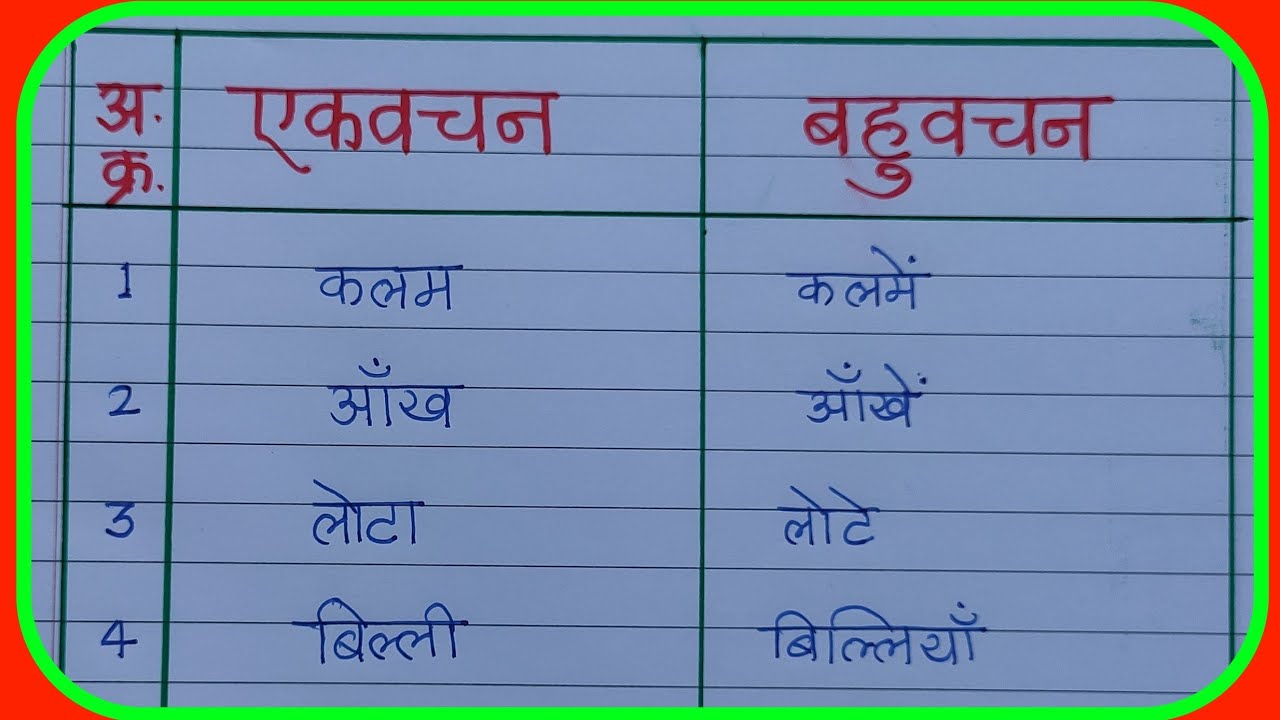 अ. क्र. एकवचन बहुवचन
1 कलम कलमें
2 आँख आँखें
3 लोटा लोटे
4 बिल्ली बिल्लियाँ